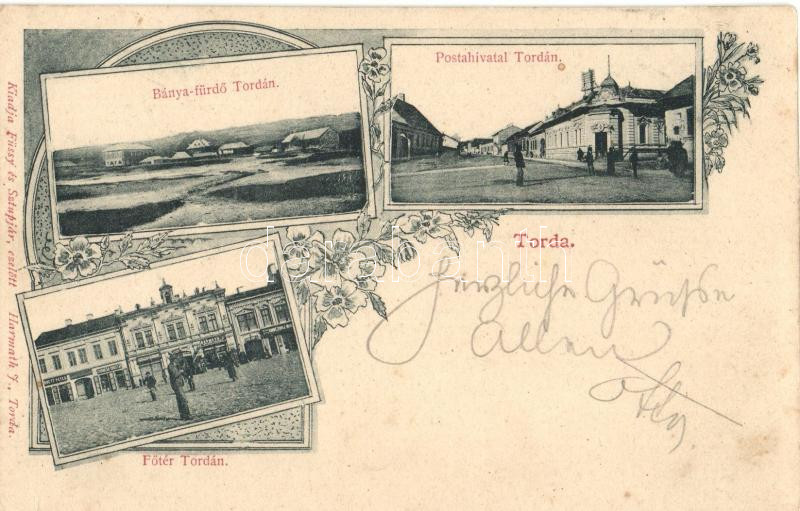 Bánya-fürdő Tordán.
Postahivatal Tordán.
Torda.
Herzliche Grüsse
Allen
Főtér Tordán.
Kiadja Füssy és Sztupjár, ezelőtt Harmath J., Torda.
darabanth